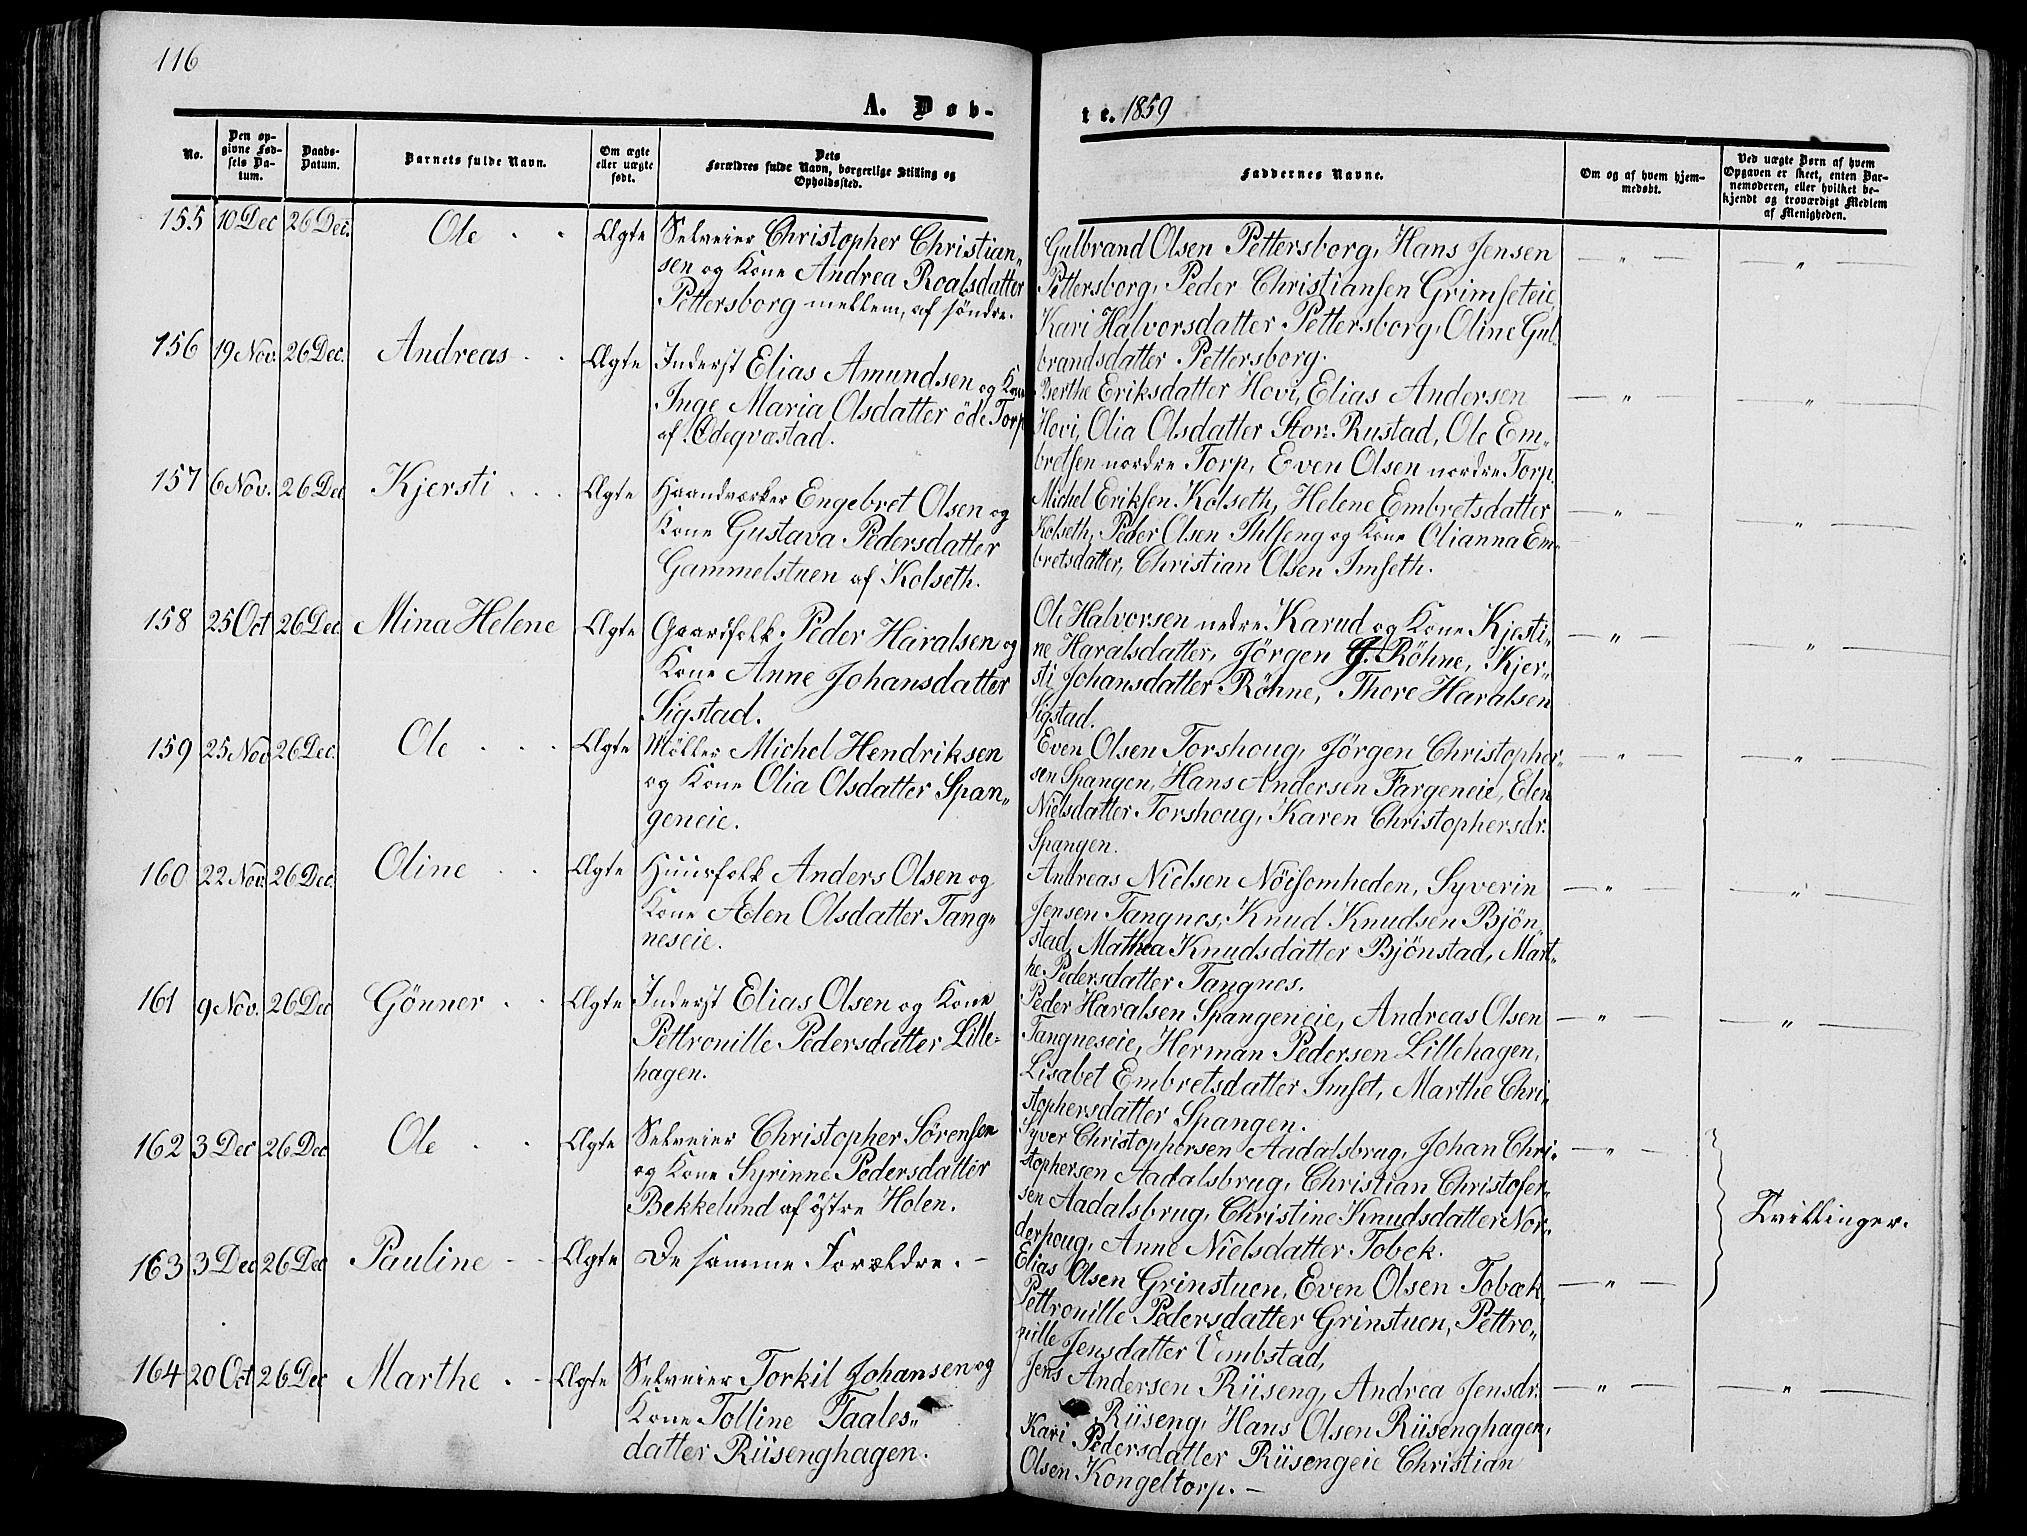 116
A. Døb-
No.
Den op-
givne Fød-
sels Da-
tum.
Daabs-
Datum.
Barnets fulde Navn.
Om ægte
eller uægte
født.
Dets
Forældres fulde Navn, borgerlige Stilling og
Opholdssted.
155 10 Dec 26 Dec. Ole Ægte Selveier Christopher Christian-
sen og Kone Andrea Roalsdatter
Pettersborg mellem, af søndre.
156 19 Nov. 26 Dec. Andreas Ægte Inderst Elias Amundsen og Kone
Inge Maria Olsdatter öde Torp
af Ødegvæstad.
157 6 Nov. 26 Dec Kjersti Ægte Haandværker Engebret Olsen og
Kone Gustava Pedersdatter
Gammelstuen af Kolseth.
158 25 Oct 26 Dec Mina Helene Ægte Gaardfolk Peder Haralsen og
Kone Anne Johansdatter
Sigstad.
159 25 Nov 26 Dec. Ole Ægte Møller Michel Hendriksen
og Kone Olia Olsdatter Span-
geneie.
160 22 Nov. 26 Dec. Oline Ægte Huusfolk Anders Olsen og
Kone Aelen Olsdatter Tang-
neseie.
161 9 Nov. 26 Dec Gönner Ægte Inderst Elias Olsen og Kone
Pettronille Pedersdatter Lille-
hagen.
162 3 Dec 26 Dec Ole Ægte Selveier Christopher Sörensen
og Kone Syrinne Pedersdatter
Bekkelund af östre Holen.
163 3 Dec 26 Dec Pauline Ægte De samme Forældre. -
164 20 Oct 26 Dec Marthe Ægte Selveier Torkil Johansen og
Kone Tolline Taales-
datter Riisenghagen.
te. 1859
Faddernes Navne.
Om og af hvem hjem-
medøbt.
Ved uægte Børn af hvem
Opgaven er skeet, enten Bar-
nemoderen, eller hvilket be-
kjendt og troværdigt Medlem
af Menigheden.
Gulbrand Olsen Pettersborg, Hans Jensen — " — — " —
Pettersborg, Peder Christiansen Grimseteie
Kari Halvorsdatter Pettersborg, Oline Gul-
brandsdatter Pettersborg.
Berthe Eriksdatter Hovi, Elias Andersen — " — — " —
Hovi, Olia Olsdatter Stor-Rustad, Ole Em-
bretsen nordre Torp, Even Olsen nordre Torp.
Michel Eriksen Kolseth, Helene Embretsdatter — " — — " —
Kolseth, Peder Olsen Ihlseng og Kone Olianna Em-
bretsdatter, Christian Olsen Imseth.
Ole Halvorsen nedre Karud og Kone Kjesti- — " — — " —
ne Haralsdatter, Jörgen J. Röhne, Kjer-
sti Johansdatter Röhne, Thore Haralsen
Sigstad.
Even Olsen Torshoug, Jörgen Christopher- — " — — " —
sen Spangen, Hans Andersen Fargeneie, Elen
Nielsdatter Torshoug, Karen Christophersdr.
Spangen.
Andreas Nielsen Nöisomheden, Syverin — " — — " —
Jensen Tangnes, Knud Knudsen Bjön-
stad, Mathea Knudsdatter Bjönstad, Mart-
he Pedersdatter Tangnes.
Peder Haralsen Spangeneie, Andreas Olsen — " — — " —
Tangneseie, Herman Pedersen Lillehagen,
Lisabet Embretsdatter Imset, Marthe Chri-
stophersdatter Spangen.
Syver Christophersen Aadalsbrug, Johan Chri- — " —
stophersen Aadalsbrug, Christian Christofer-
sen Aadalsbrug, Christine Knudsdatter Nor- Tvillinger.
derhoug, Anne Nielsdatter Tobek.
Elias Olsen Grinstuen, Even Olsen Tobæk — " —
Pettronille Pedersdatter Grinstuen, Pettro-
nille Jensdatter Vembstad,
Jens Andersen Riiseng, Andrea Jensdr. — " — — " —
Riiseng, Hans Olsen Riisenghagen,
Kari Pedersdatter Riisengeie Christian
Olsen Kongeltorp. —